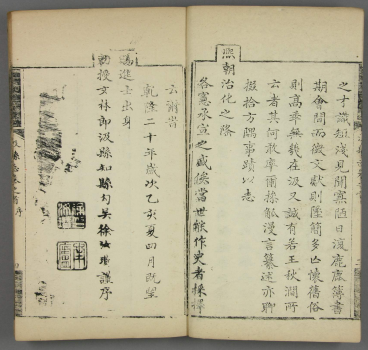 之才識短淺見聞寡陋日汲鹿鹿簿書
期會間而徵文獻則陸簡多亡懷舊俗
則高年無幾在汲又誠有若王秋澗所
云者其何敢率爾操觚漫言纂述亦聊
掇拾方隅事蹟以志
熙朝治化之隆
各憲承宣之盛俟當世能作史者採擇
云爾時
乾隆二十年歲次乙亥夏四月既望
賜進士出身
勅授文林郎汲縣知縣句吳徐汝瓚謹序